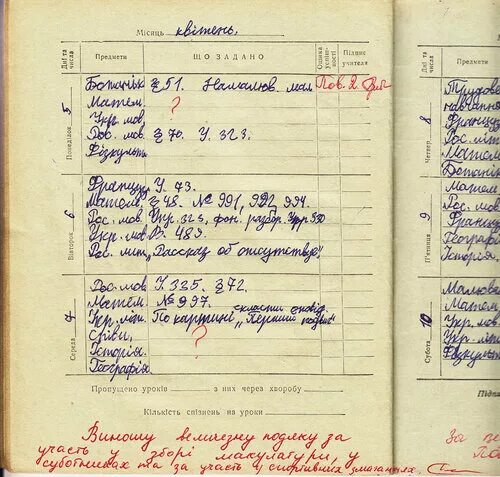 Місяць квітень.
Дні та числа Предмети ЩО ЗАДАНО Оцінка успішності Підпис учителя
Понеділок 5
Ботанік §51. Намалюв. мал Пов. 2
Матем. ?
Укр. мов.
Рос. мов. §70. У. 323.
Фізкульт.
Вівторок 6
Француз. У. 73.
Матем. §48. № 991, 992, 994.
Рос. мов. Упр. 325, фон. разбор. Упр 330
Укр. мов. № 489.
Рос. літ. „Рассказ об
Середа 7
Рос. мов. У. 335. §72.
Матем. № 997.
Укр. літ. По картині скласти оповід. „Перший
Співи. ?
Історія.
Географія.
Пропущено уроків з них через хворобу
Кількість спізнень на уроки
Виношу величезну подяку за
участь у зборі макулатури, у
суботниках та за участь у спортивних змаганнях.
Четвер 8
Трудове
навчання
Француз
Рос. літ.
Матем
Ботанік
П'ятниця 9
Матем
Рос. мов.
Француз
Географія
Історія.
Субота 10
Малюван
Матем.
Укр. мов.
Укр. літ.
Фізкульт
Підпи
За
По